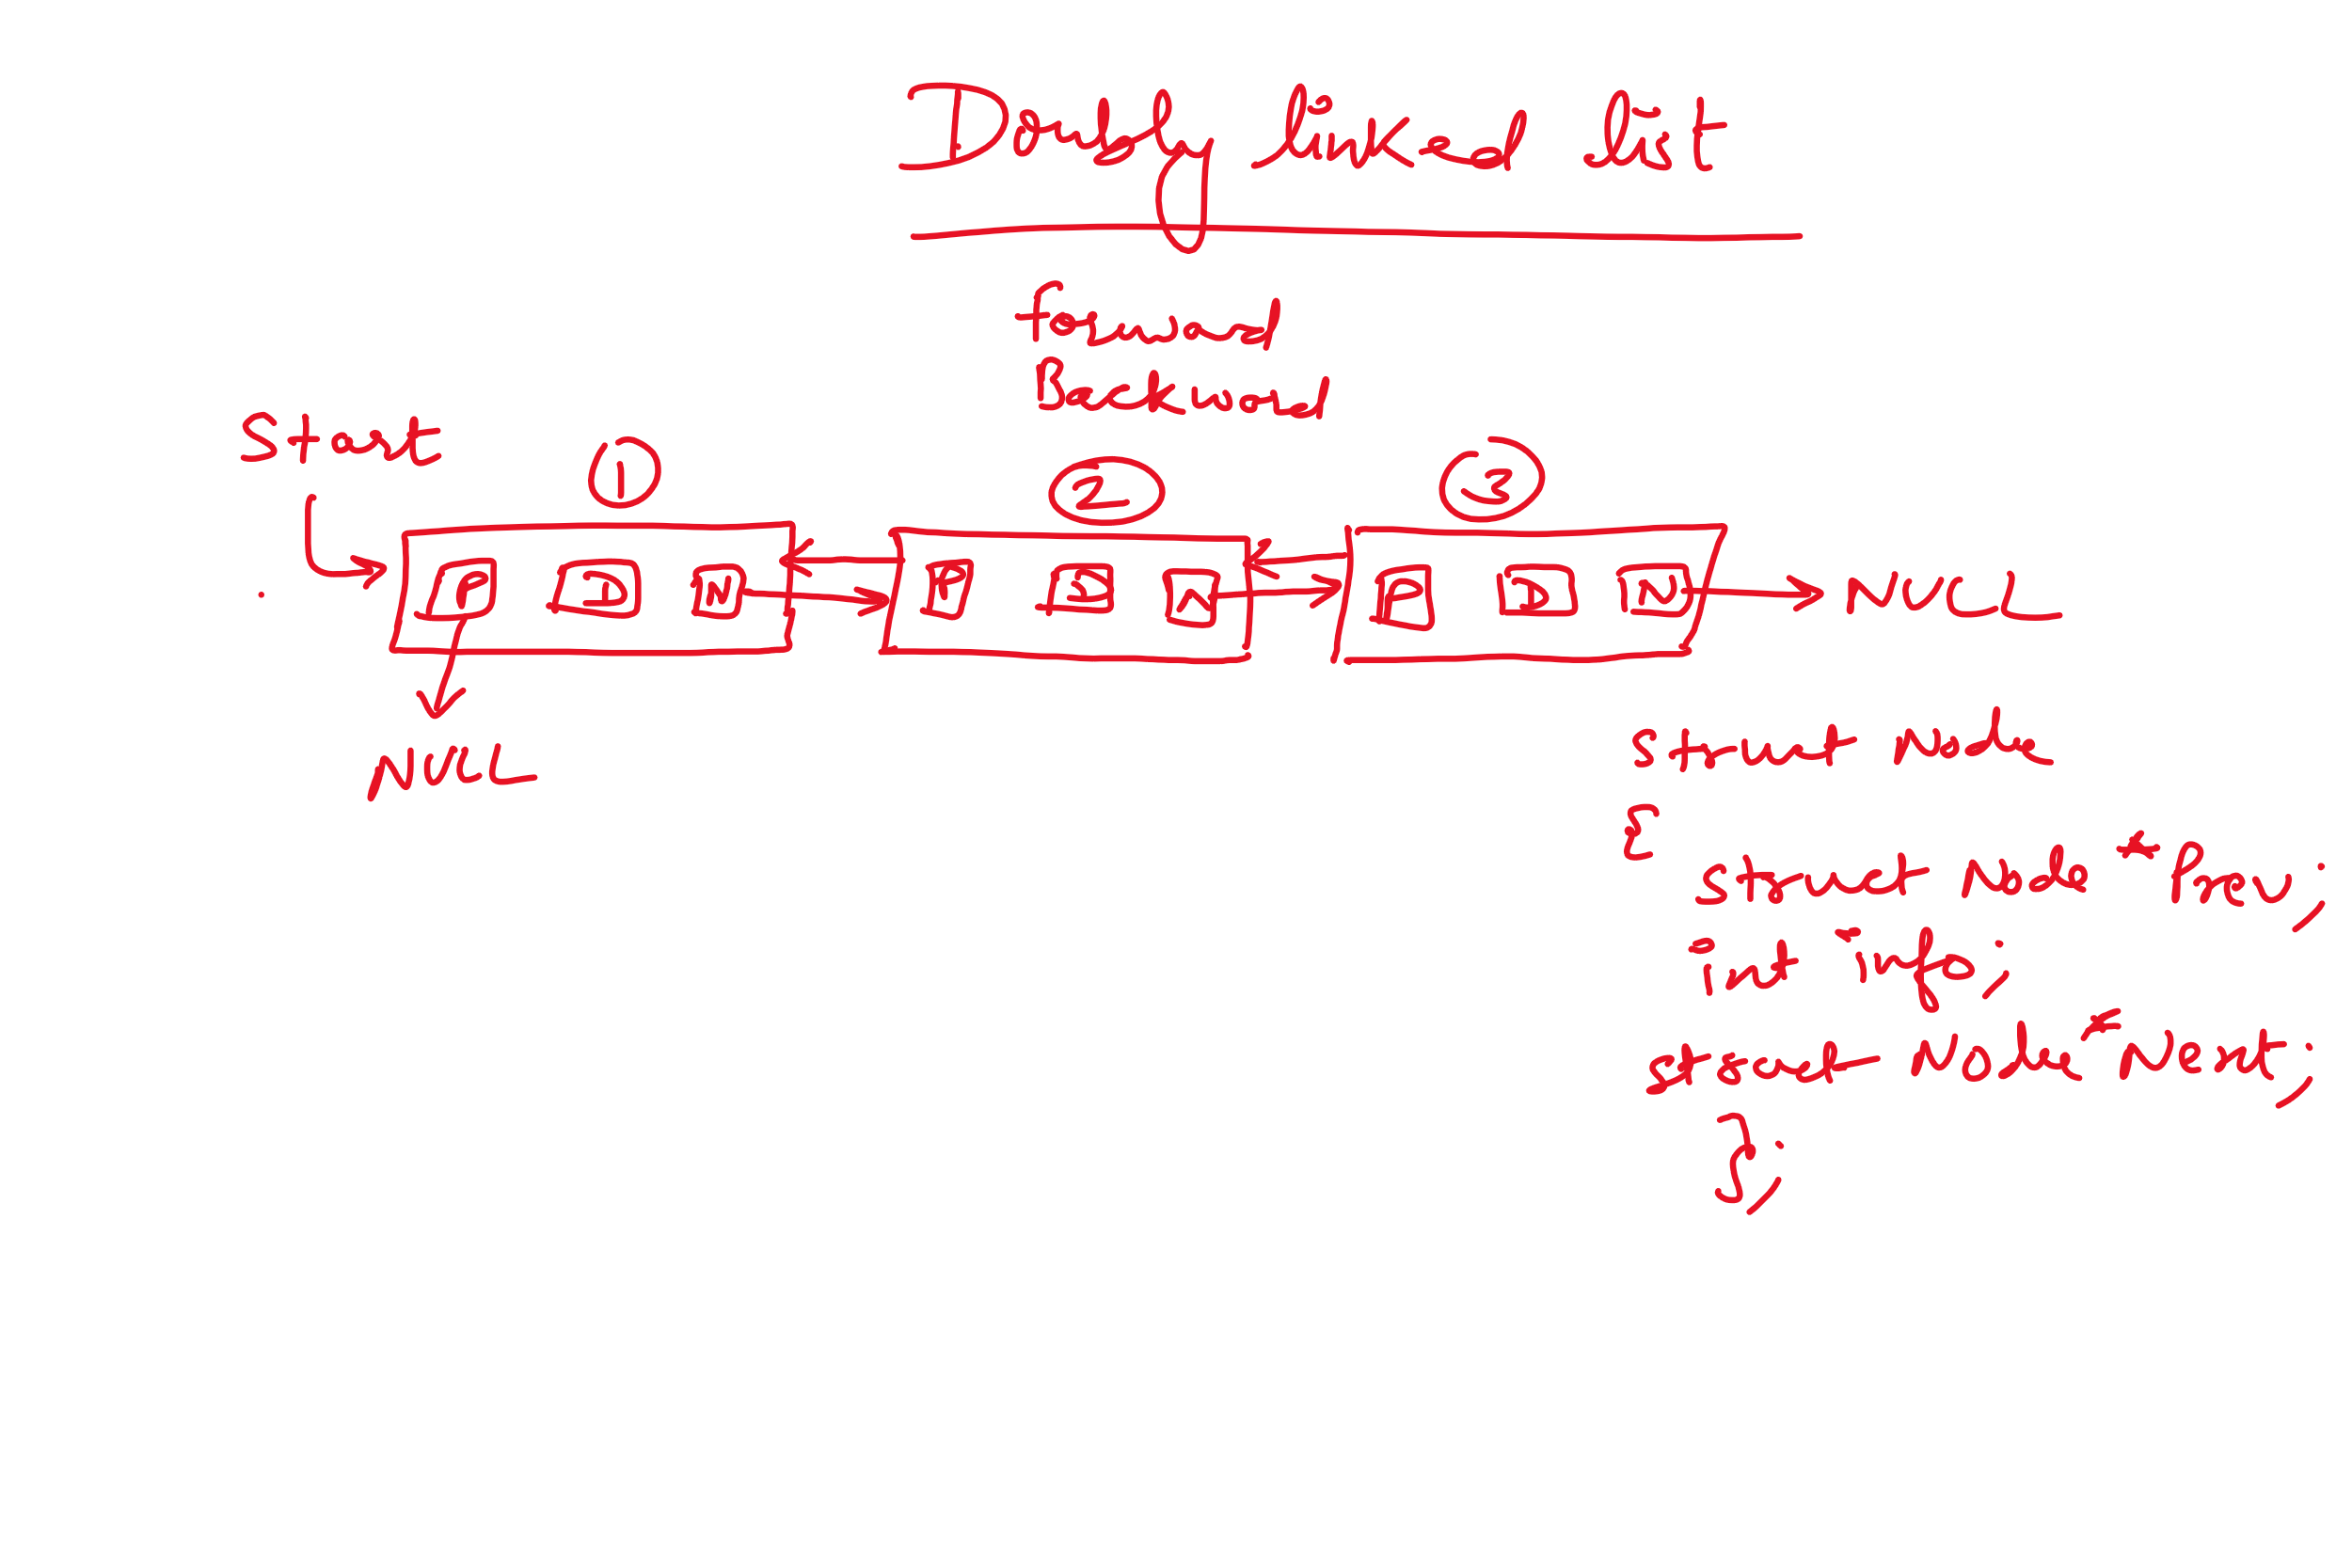 Doubly linked list
forward
Backward
Start
1 2 3
P D N P D N P D N NULL
NULL
struct Node
{
struct Node *Prev;
int info;
struct Node *Next;
};